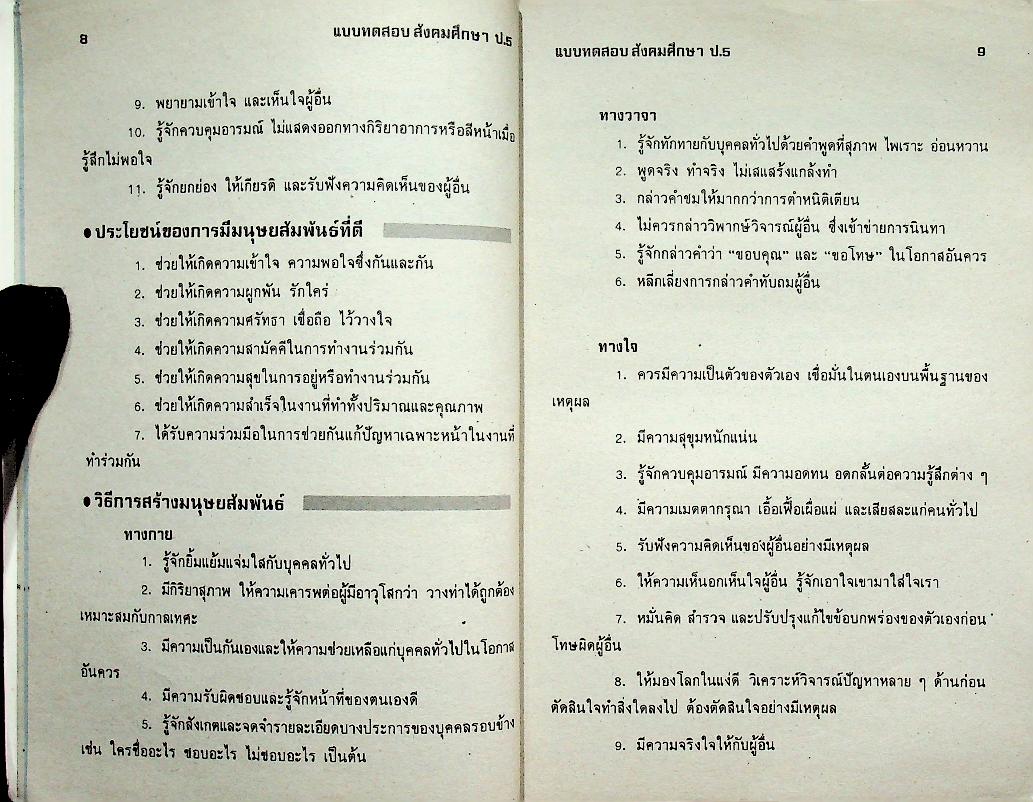 8
แบบทดสอบ สังคมศึกษา ป.5
9. พยายามเข้าใจ และเห็นใจผู้อื่น
10. รู้จักควบคุมอารมณ์ ไม่แสดงออกทางกิริยาอาการหรือสีหน้าเมื่อ
รู้สึกไม่พอใจ
11. รู้จักยกย่อง ให้เกียรติ และรับฟังความคิดเห็นของผู้อื่น
● ประโยชน์ของการมีมนุษยสัมพันธ์ที่ดี
1. ช่วยให้เกิดความเข้าใจ ความพอใจซึ่งกันและกัน
2. ช่วยให้เกิดความผูกพัน รักใคร่
3. ช่วยให้เกิดความศรัทธา เชื่อถือ ไว้วางใจ
4. ช่วยให้เกิดความสามัคคีในการทำงานร่วมกัน
5. ช่วยให้เกิดความสุขในการอยู่หรือทำงานร่วมกัน
6. ช่วยให้เกิดความสำเร็จในงานที่ทำทั้งปริมาณและคุณภาพ
7. ได้รับความร่วมมือในการช่วยกันแก้ปัญหาเฉพาะหน้าในงานที่
ทำร่วมกัน
● วิธีการสร้างมนุษยสัมพันธ์
ทางกาย
1. รู้จักยิ้มแย้มแจ่มใสกับบุคคลทั่วไป
2. มีกิริยาสุภาพ ให้ความเคารพต่อผู้มีอาวุโสกว่า วางท่าได้ถูกต้อง
เหมาะสมกับกาลเทศะ
3. มีความเป็นกันเองและให้ความช่วยเหลือแก่บุคคลทั่วไปในโอกาส
อันควร
4. มีความรับผิดชอบและรู้จักหน้าที่ของตนเองดี
5. รู้จักสังเกตและจดจำรายละเอียดบางประการของบุคคลรอบข้าง
เช่น ใครชื่ออะไร ชอบอะไร ไม่ชอบอะไร เป็นต้น
แบบทดสอบ สังคมศึกษา ป.5
9
ทางวาจา
1. รู้จักทักทายกับบุคคลทั่วไปด้วยคำพูดที่สุภาพ ไพเราะ อ่อนหวาน
2. พูดจริง ทำจริง ไม่เสแสร้งแกล้งทำ
3. กล่าวคำชมให้มากกว่าการตำหนิติเตียน
4. ไม่ควรกล่าววิพากษ์วิจารณ์ผู้อื่น ซึ่งเข้าข่ายการนินทา
5. รู้จักกล่าวคำว่า “ขอบคุณ” และ “ขอโทษ” ในโอกาสอันควร
6. หลีกเลี่ยงการกล่าวคำทับถมผู้อื่น
ทางใจ
1. ควรมีความเป็นตัวของตัวเอง เชื่อมั่นในตนเองบนพื้นฐานของ
เหตุผล
2. มีความสุขุมหนักแน่น
3. รู้จักควบคุมอารมณ์ มีความอดทน อดกลั้นต่อความรู้สึกต่าง ๆ
4. มีความเมตตากรุณา เอื้อเฟื้อเผื่อแผ่ และเสียสละแก่คนทั่วไป
5. รับฟังความคิดเห็นของผู้อื่นอย่างมีเหตุผล
6. ให้ความเห็นอกเห็นใจผู้อื่น รู้จักเอาใจเขามาใส่ใจเรา
7. หมั่นคิด สำรวจ และปรับปรุงแก้ไขข้อบกพร่องของตัวเองก่อน
โทษผิดผู้อื่น
8. ให้มองโลกในแง่ดี วิเคราะห์วิจารณ์ปัญหาหลาย ๆ ด้านก่อน
ตัดสินใจทำสิ่งใดลงไป ต้องตัดสินใจอย่างมีเหตุผล
9. มีความจริงใจให้กับผู้อื่น